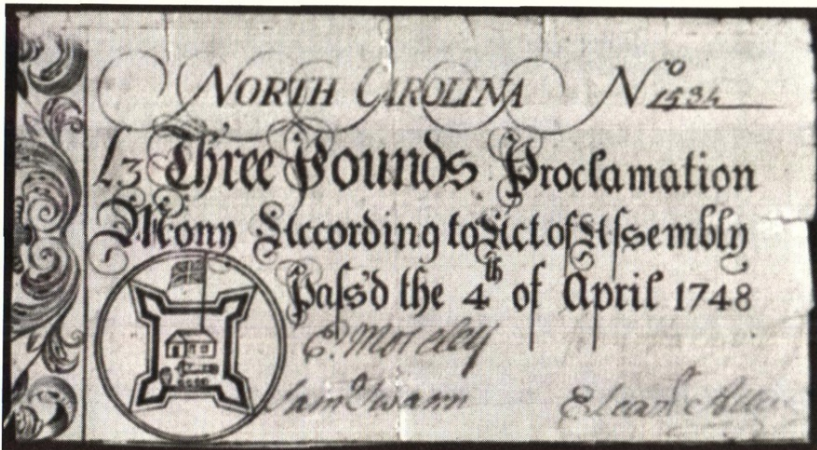 NORTH CAROLINA No
£3 Three Pounds Proclamation
Mony According to Act of Assembly
Pass'd the 4th of April 1748
E. Moseley
Sam Swann
Eleaz Allen